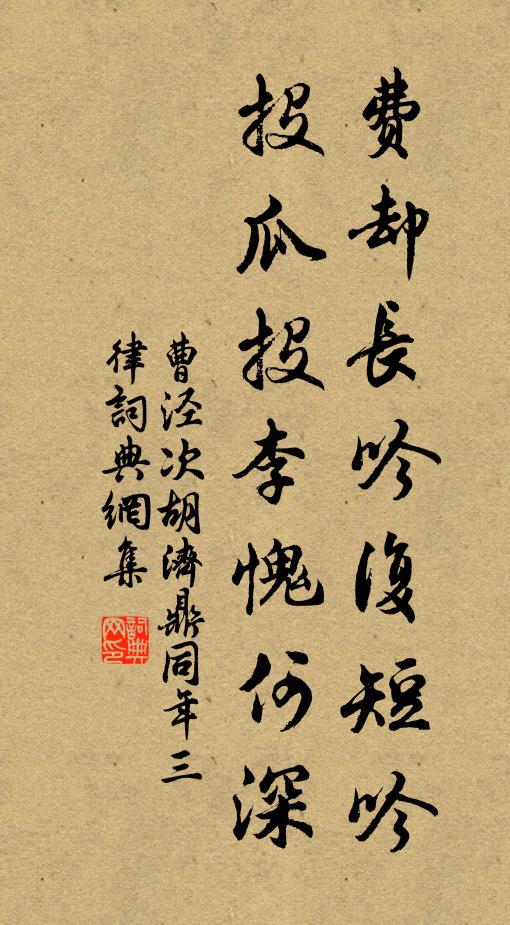 費却長吟復短吟
投瓜投李愧何深
曹涇次胡濟鼎同年三
律詞典網集
詞典
网印